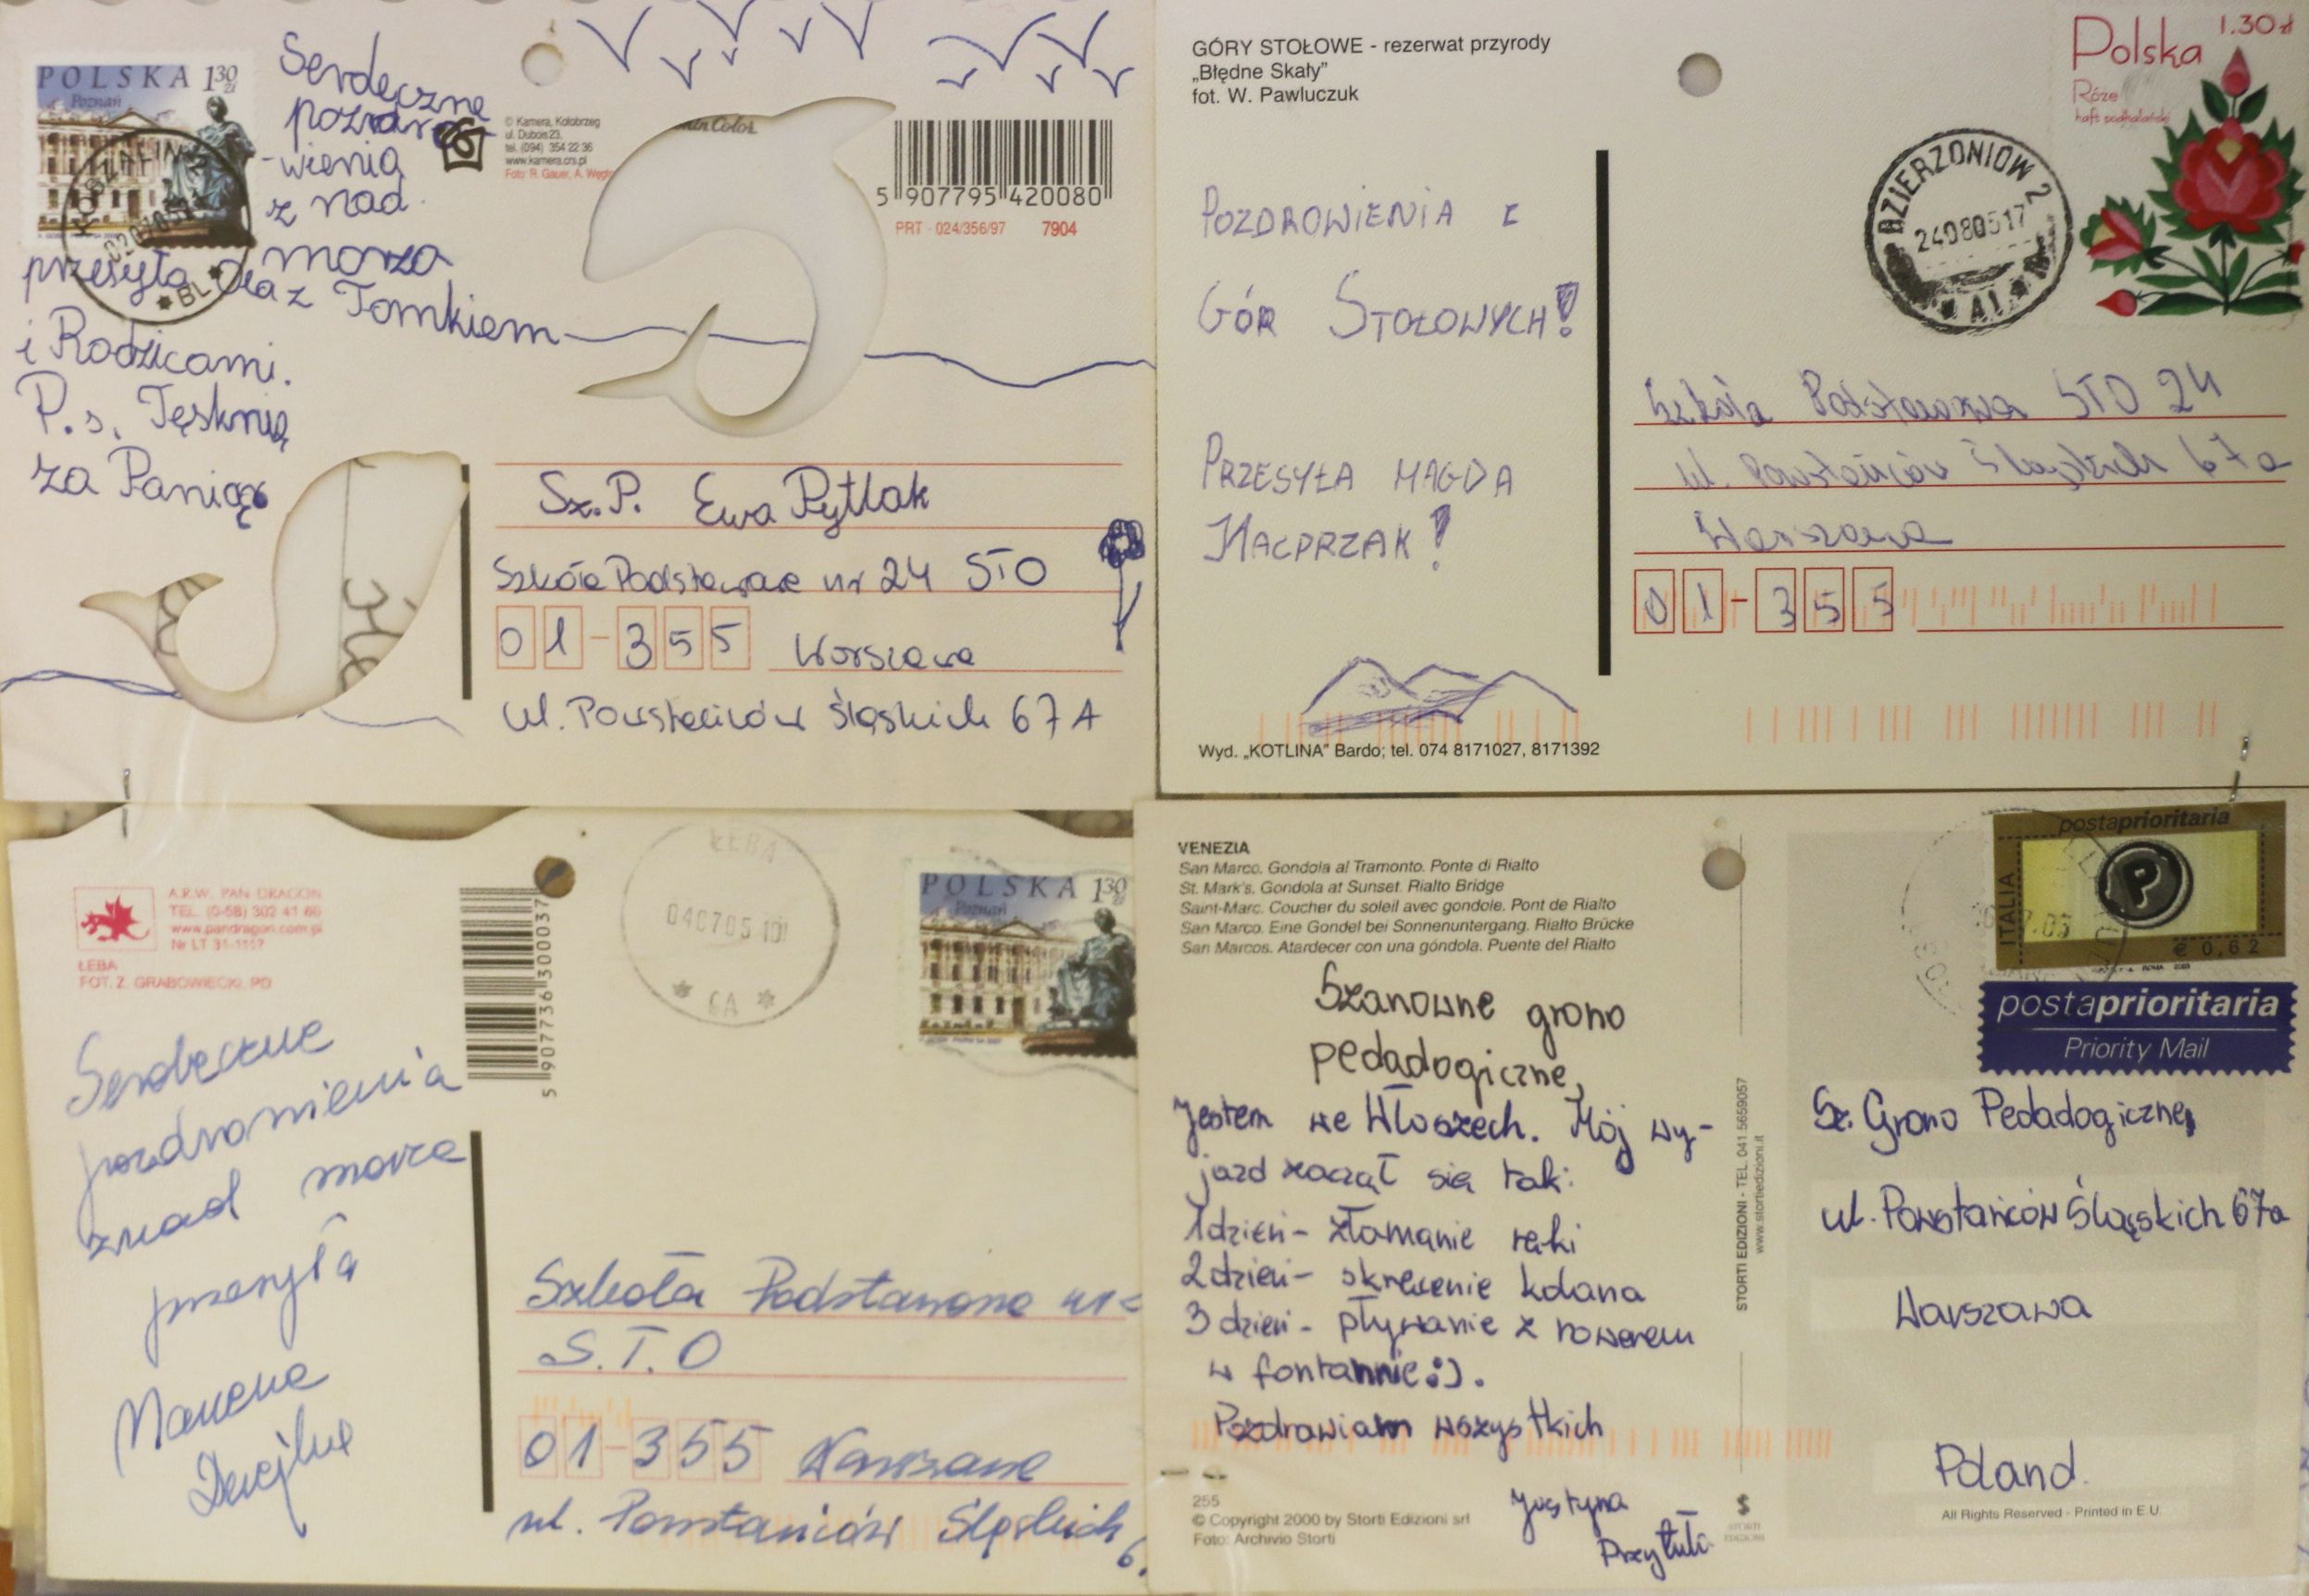 POLSKA 1 30 zł
Poznań
Serdeczne
pozdro
-wienia
z nad
morza
przesyła Ola z Tomkiem
i Rodzicami.
P.s. Tęsknię
za Panią
© Kamera, Kołobrzeg
ul. Dubois 23,
tel. (094) 354 22 36
www.kamera.crs.pl
Color
5 907795 420080
PRT - 024/356/97 7904
Sz. P. Ewa Pytlak
Szkoła Podstawowa nr 24 STO
01-355 Warszawa
ul. Powstańców Śląskich 67 A
GÓRY STOŁOWE - rezerwat przyrody
„Błędne Skały”
fot. W. Pawluczuk
POZDROWIENIA Z
GÓR STOŁOWYCH!
PRZESYŁA MAGDA
KACPRZAK!
Wyd. „KOTLINA” Bardo; tel. 074 8171027, 8171392
Polska 1.30 zł
Róże
haft podhalański
DZIERŻONIÓW 2
24080517
Szkoła Podstawowa STO 24
ul. Powstańców Śląskich 67a
Warszawa
01-355
A.R.W. PAN DRAGON
TEL. (0-58) 302 41 66
www.pandragon.com.pl
Nr LT 31-1157
ŁEBA
FOT. Z. GRABOWIECKI, PD
5 907736 300037
ŁEBA
040705 10
GA
POLSKA 1 30 zł
Poznań
Serdeczne
pozdrowienia
znad morza
przesyła
Marcena
Szkoła Podstawowa nr
S.T.O
01-355 Warszawa
ul. Powstańców Śląskich 6
VENEZIA
San Marco. Gondola al Tramonto. Ponte di Rialto
St. Mark's. Gondola at Sunset. Rialto Bridge
Saint-Marc. Coucher du soleil avec gondole. Pont de Rialto
San Marco. Eine Gondel bei Sonnenuntergang. Rialto Brücke
San Marcos. Atardecer con una góndola. Puente del Rialto
Szanowne grono
pedadogiczne,
Jestem we Włoszech. Mój wy-
jazd zaczął się tak:
1 dzień - złamanie ręki
2 dzień - skręcenie kolana
3 dzień - pływanie z rowerem
w fontannie :).
Pozdrawiam wszystkich
Justyna
Przytuła
255
© Copyright 2000 by Storti Edizioni srl
Foto: Archivio Storti
STORTI EDIZIONI - TEL. 041.5659057
www.stortiedizioni.it
STORTI
EDIZIONI
postaprioritaria
P
ITALIA
€ 0,62
postaprioritaria
Priority Mail
Sz. Grono Pedadogiczne,
ul. Powstańców Śląskich 67a
Warszawa
Poland.
All Rights Reserved - Printed in E.U.